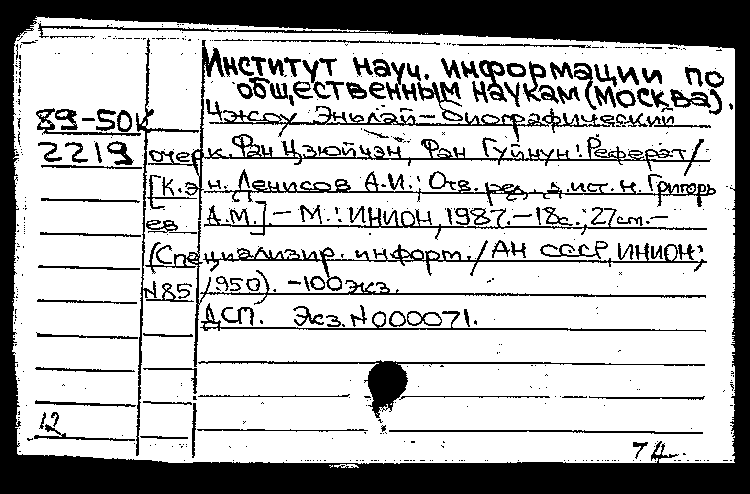 Институт науч. информации по
общественным наукам (Москва).
89-50К Чжоу Эньлай - биографический
2219 очерк. Фан Цзюйчэн, Фан Гуйнун: Реферат /
[К.э.н. Денисов А.И.; Отв. ред. д.ист.н. Григорь
ев А.М.]. - М.: ИНИОН, 1987. - 18с.; 27см. -
(Специализир. информ. / АН СССР, ИНИОН;
N85 /950). - 100 экз.
ДСП. Экз. N000071.
12